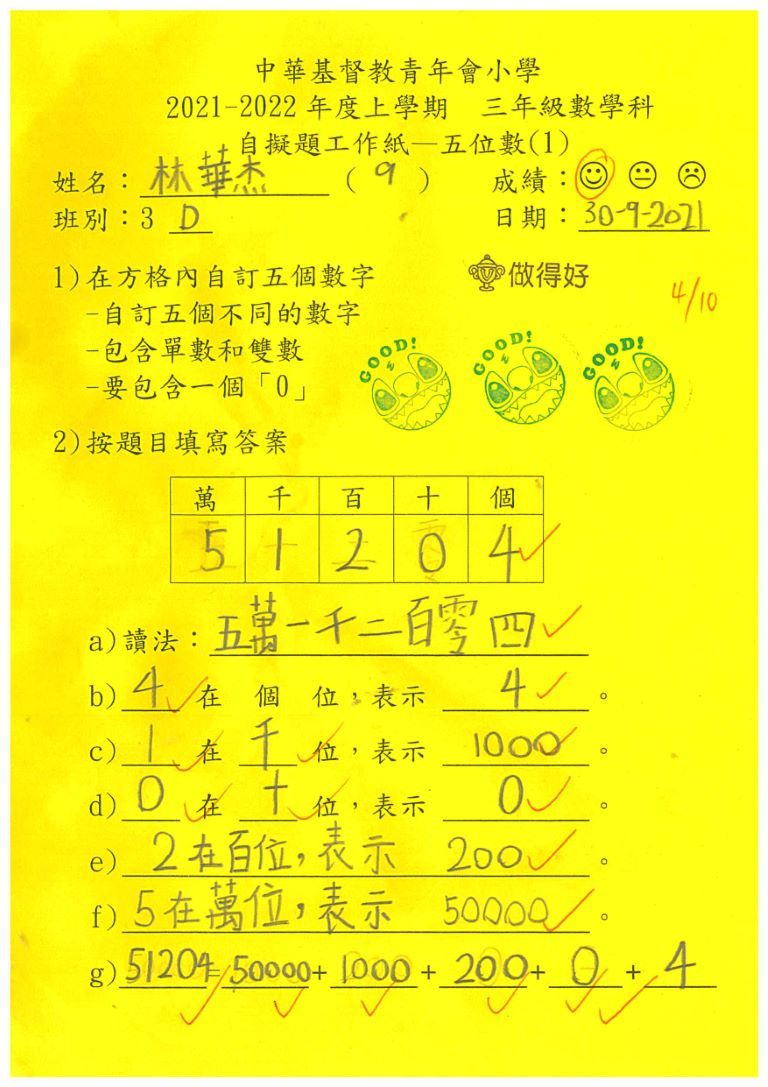 中華基督教青年會小學
2021-2022 年度上學期 三年級數學科
自擬題工作紙—五位數(1)
姓名：林華杰 ( 9 ) 成績：
班別：3 D 日期：30-9-2021
1)在方格內自訂五個數字 做得好
4/10
-自訂五個不同的數字
-包含單數和雙數
-要包含一個「0」
GOOD! GOOD! GOOD!
2)按題目填寫答案
萬 千 百 十 個
5 1 2 0 4
a)讀法：五萬一千二百零四
b) 4 在 個 位，表示 4 。
c) 1 在 千 位，表示 1000 。
d) 0 在 十 位，表示 0 。
e) 2在百位，表示 200 。
f) 5在萬位，表示 50000 。
g) 51204= 50000+ 1000 + 200+ 0 + 4